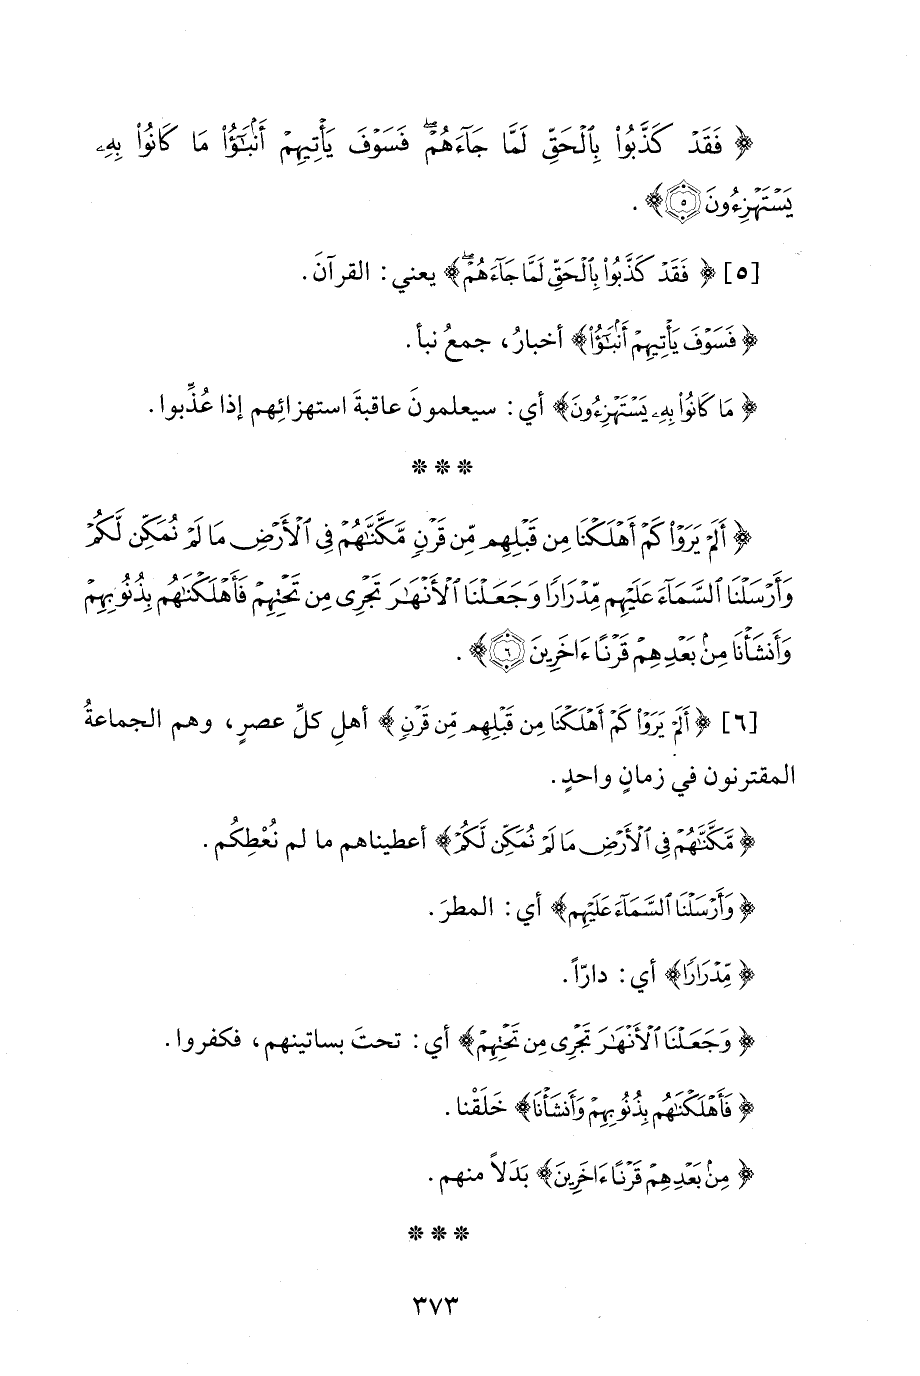 ﴿ فَقَدْ كَذَّبُوا۟ بِٱلْحَقِّ لَمَّا جَآءَهُمْ ۖ فَسَوْفَ يَأْتِيهِمْ أَنۢبَـٰٓؤُا۟ مَا كَانُوا۟ بِهِۦ
يَسْتَهْزِءُونَ ٥ ﴾ .
[٥] ﴿ فَقَدْ كَذَّبُوا۟ بِٱلْحَقِّ لَمَّا جَآءَهُمْ ۖ ﴾ يعني: القرآنَ.
﴿ فَسَوْفَ يَأْتِيهِمْ أَنۢبَـٰٓؤُا۟ ﴾ أخبارُ، جمعُ نبأ.
﴿ مَا كَانُوا۟ بِهِۦ يَسْتَهْزِءُونَ ﴾ أي: سيعلمونَ عاقبةَ استهزائِهم إذا عُذِّبوا.
* * *
﴿ أَلَمْ يَرَوْا۟ كَمْ أَهْلَكْنَا مِن قَبْلِهِم مِّن قَرْنٍ مَّكَّنَّـٰهُمْ فِى ٱلْأَرْضِ مَا لَمْ نُمَكِّن لَّكُمْ
وَأَرْسَلْنَا ٱلسَّمَآءَ عَلَيْهِم مِّدْرَارًا وَجَعَلْنَا ٱلْأَنْهَـٰرَ تَجْرِى مِن تَحْتِهِمْ فَأَهْلَكْنَـٰهُم بِذُنُوبِهِمْ
وَأَنشَأْنَا مِنۢ بَعْدِهِمْ قَرْنًا ءَاخَرِينَ ٦ ﴾ .
[٦] ﴿ أَلَمْ يَرَوْا۟ كَمْ أَهْلَكْنَا مِن قَبْلِهِم مِّن قَرْنٍ ﴾ أهلِ كلِّ عصرٍ، وهم الجماعةُ
المقترنون في زمانٍ واحدٍ.
﴿ مَّكَّنَّـٰهُمْ فِى ٱلْأَرْضِ مَا لَمْ نُمَكِّن لَّكُمْ ﴾ أعطيناهم ما لم نُعْطِكُم.
﴿ وَأَرْسَلْنَا ٱلسَّمَآءَ عَلَيْهِم ﴾ أي: المطرَ.
﴿ مِّدْرَارًا ﴾ أي: دارّاً.
﴿ وَجَعَلْنَا ٱلْأَنْهَـٰرَ تَجْرِى مِن تَحْتِهِمْ ﴾ أي: تحتَ بساتينهم، فكفروا.
﴿ فَأَهْلَكْنَـٰهُم بِذُنُوبِهِمْ وَأَنشَأْنَا ﴾ خَلَقْنا.
﴿ مِنۢ بَعْدِهِمْ قَرْنًا ءَاخَرِينَ ﴾ بَدَلاً منهم.
* * *
٣٧٣